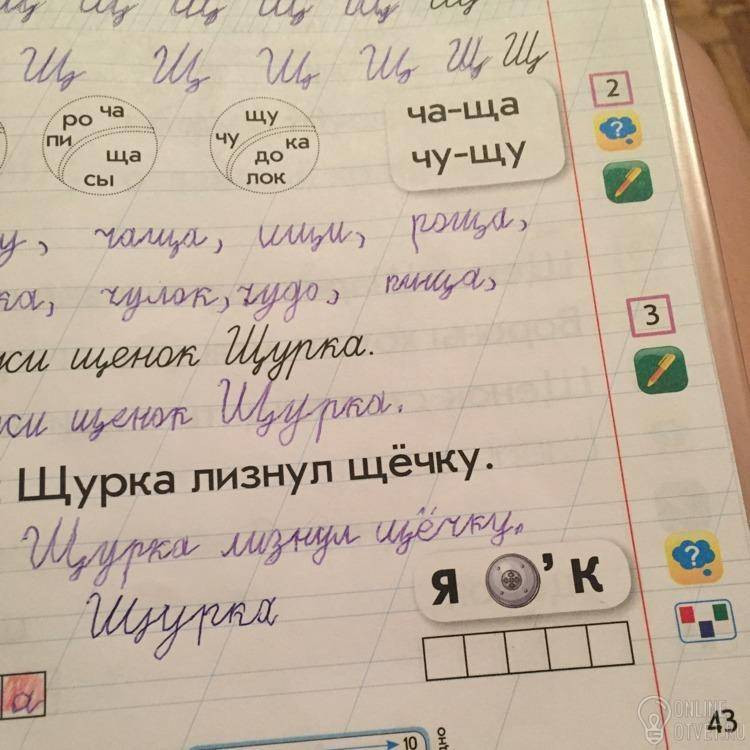 Щ Щ Щ Щ Щ Щ
2
ро ча
пи
ща
сы
щу
чу ка
до
лок
ча-ща
чу-щу
у, чаща, ищи, роща,
ка, чулок, чудо, пища,
3
си щенок Щурка.
си щенок Щурка.
Щурка лизнул щёчку.
Щурка лизнул щёчку.
я ’ к
Щурка
а
43
10
ONLINE
OTVET.RU